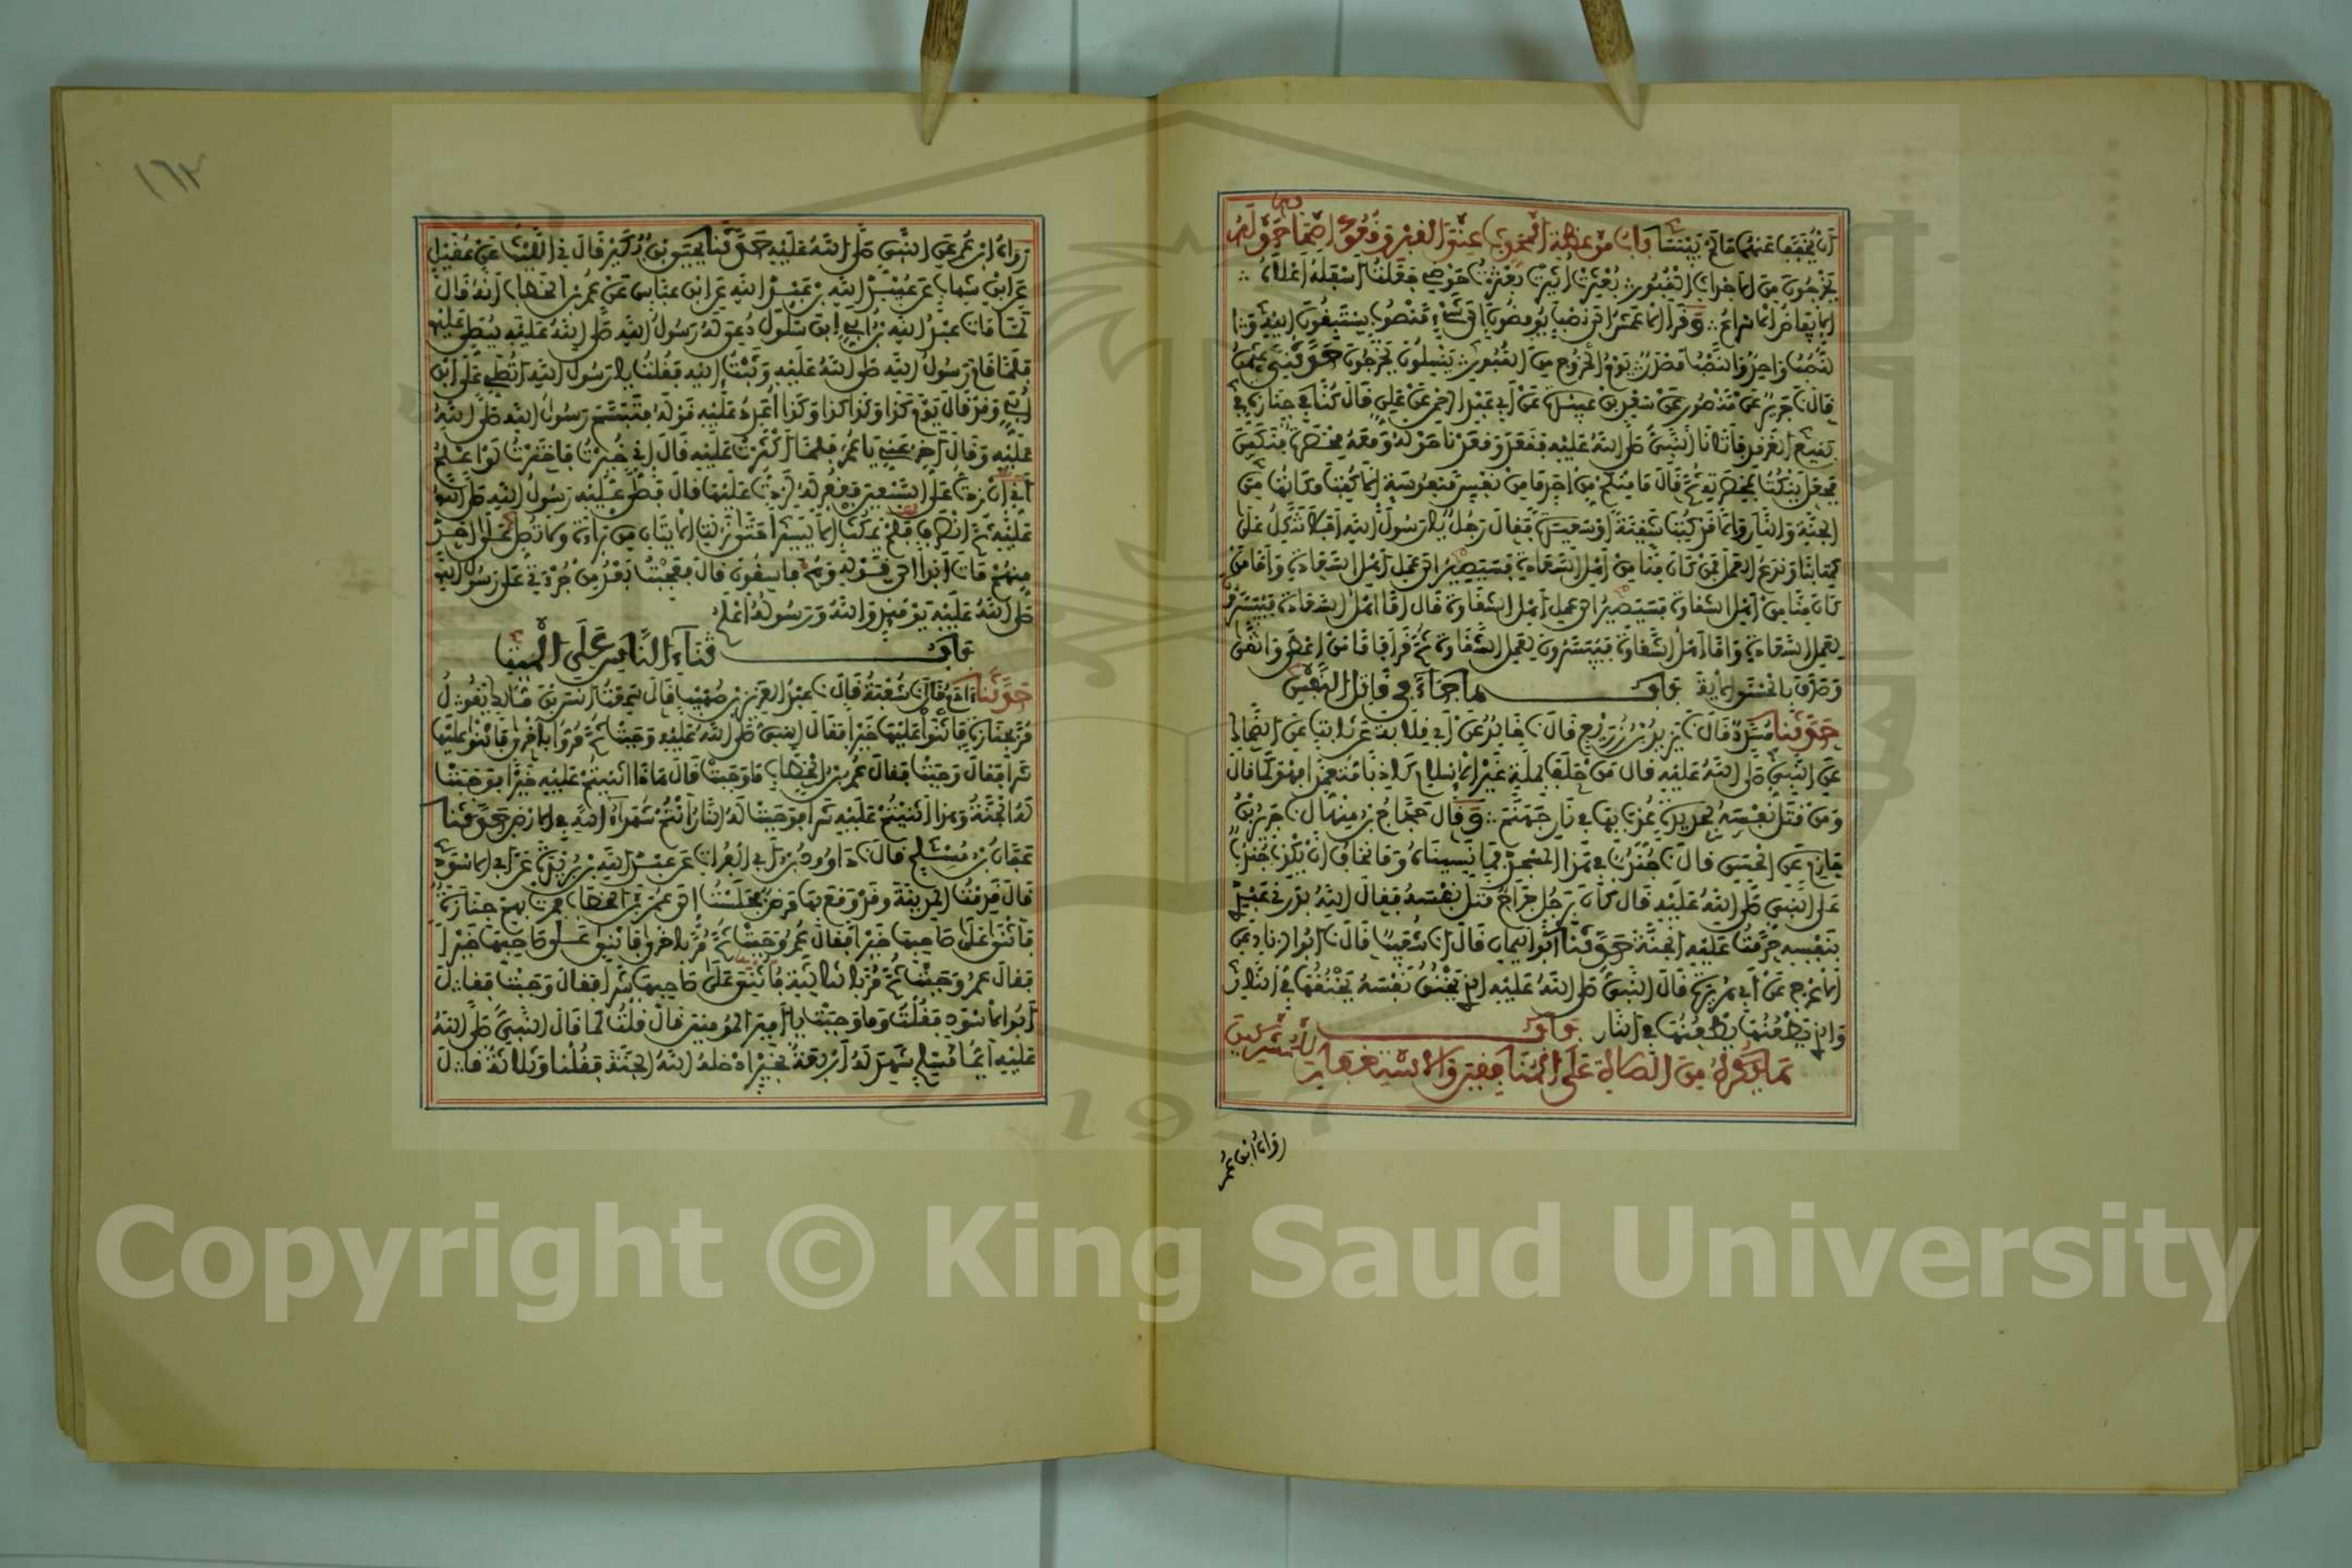 أن يخفف عنهما ما لم ييبسا باب موعظة المحدث عند القبر وقعود أصحابه حوله
يخرجون من الأجداث القبور بعثرت أثيرت بعثرت حوضي جعلت أسفله أعلاه
الإيفاض الإسراع وقرأ الأعمش إلى نصب يوفضون إلى شيء منصوب يستبقون إليه و
النصب واحد والنصب مصدر يوم الخروج من القبور ينسلون يخرجون حدثني عثمان
قال جرير عن منصور عن سعد بن عبيدة عن أبي عبد الرحمن عن علي قال كنا في جنازة في
بقيع الغرقد فأتانا النبي صلى الله عليه فقعد وقعدنا حوله ومعه مخصرة فنكس
فجعل ينكت بمخصرته ثم قال ما منكم من أحد ما من نفس منفوسة إلا كتب مكانها من
الجنة والنار وإلا قد كتبت شقية أو سعيدة فقال رجل يا رسول الله أفلا نتكل على
كتابنا وندع العمل فمن كان منا من أهل السعادة فسيصير إلى عمل أهل السعادة وأما من
كان منا من أهل الشقاوة فسيصير إلى عمل أهل الشقاوة قال أما أهل السعادة فييسرون
لعمل السعادة وأما أهل الشقاوة فييسرون لعمل الشقاوة ثم قرأ فأما من أعطى واتقى
وصدق بالحسنى الآية باب ما جاء في قاتل النفس
حدثنا مسدد قال يزيد بن زريع قال خالد عن أبي قلابة عن ثابت عن الضحاك
عن النبي صلى الله عليه قال من حلف بملة غير الإسلام كاذبا متعمدا فهو كما قال
ومن قتل نفسه بحديدة عذب بها في نار جهنم وقال حجاج بن منهال جرير بن
حازم عن الحسن قال جندب في هذا المسجد فما نسيناه وما نخاف أن يكذب جندب
على النبي صلى الله عليه قال كان برجل جراح قتل نفسه فقال الله بدرني عبدي
بنفسه حرمت عليه الجنة حدثنا أبو اليمان قال شعيب قال أبو الزناد عن
الأعرج عن أبي هريرة قال النبي صلى الله عليه الذي يخنق نفسه يخنقها في النار
والذي يطعنها يطعنها في النار باب
ما يكره من الصلاة على المنافقين والاستغفار للمشركين
رواه ابن عمر
١٦٢
رواه ابن عمر عن النبي صلى الله عليه حدثنا يحيى بن بكير قال في الليث عن عقيل
عن ابن شهاب عن عبيد الله بن عبد الله عن ابن عباس عن عمر بن الخطاب أنه قال
لما مات عبد الله بن أبي ابن سلول دعي له رسول الله صلى الله عليه ليصلي عليه
فلما قام رسول الله صلى الله عليه وثبت إليه فقلت يا رسول الله أتصلي على ابن
أبي وقد قال يوم كذا وكذا كذا وكذا أعدد عليه قوله فتبسم رسول الله صلى الله
عليه وقال أخر عني يا عمر فلما أكثرت عليه قال إني خيرت فاخترت لو أعلم
أني إن زدت على السبعين فغفر له لزدت عليها قال فصلى عليه رسول الله صلى الله
عليه ثم انصرف فلم يمكث إلا يسيرا حتى نزلت الآيتان من براءة ولا تصل على أحد
منهم مات أبدا إلى قوله وهم فاسقون قال فعجبت بعد من جرءتي على رسول الله
صلى الله عليه يومئذ والله ورسوله أعلم
باب ثناء الناس على الميت
حدثنا آدم قال شعبة قال عبد العزيز بن صهيب قال سمعت أنس بن مالك يقول
مر بجنازة فأثنوا عليها خيرا فقال النبي صلى الله عليه وجبت ثم مروا بأخرى فأثنوا عليها
شرا فقال وجبت فقال عمر بن الخطاب ما وجبت قال هذا أثنيتم عليه خيرا فوجبت
له الجنة وهذا أثنيتم عليه شرا فوجبت له النار أنتم شهداء الله في الأرض حدثنا
عفان بن مسلم قال داوود بن أبي الفرات عن عبد الله بن بريدة عن أبي الأسود
قال قدمت المدينة وقد وقع بها مرض فجلست إلى عمر بن الخطاب فمرت بهم جنازة
فأثنوا على صاحبها خيرا فقال عمر وجبت ثم مر بأخرى فأثنوا على صاحبها خيرا
فقال عمر وجبت ثم مر بالثالثة فأثني على صاحبها شرا فقال وجبت فقال
أبو الأسود فقلت وما وجبت يا أمير المومنين قال قلت كما قال النبي صلى الله
عليه أيما مسلم شهد له أربعة بخير أدخله الله الجنة فقلنا وثلاثة قال
Copyright © King Saud University
1957